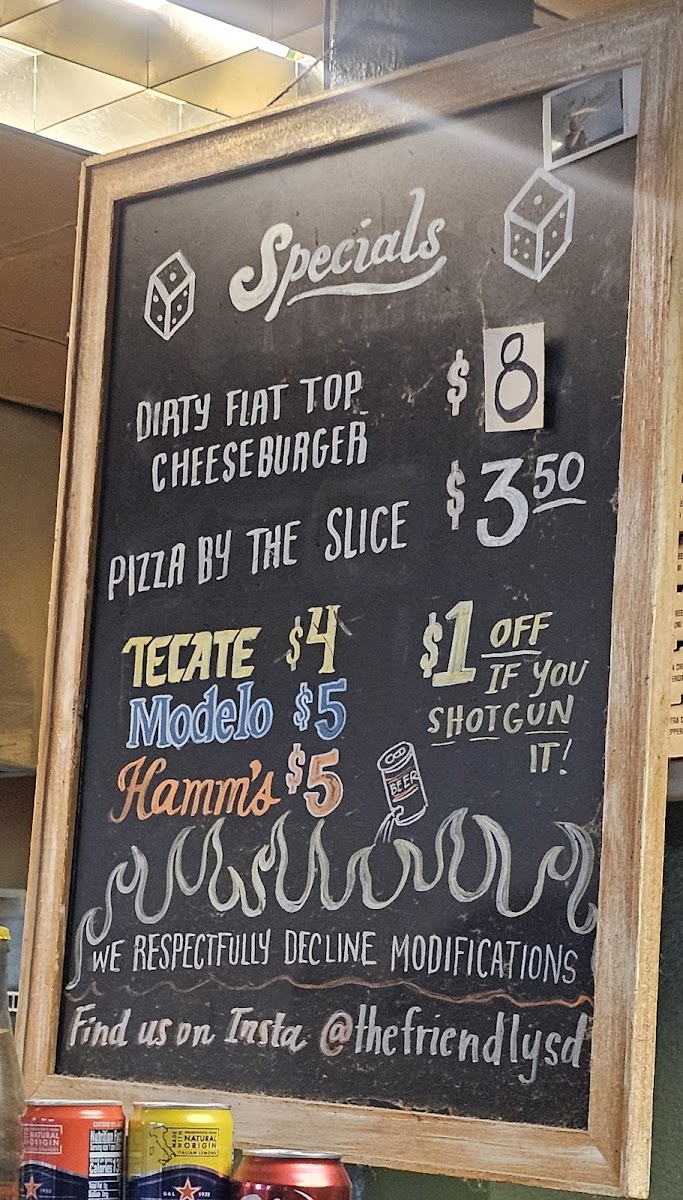 Specials
DIRTY FLAT TOP
CHEESEBURGER
$8
PIZZA BY THE SLICE
$3.50
TECATE $4
Modelo $5
Hamm's $5
$1 OFF
IF YOU
SHOTGUN
IT!
BEER
WE RESPECTFULLY DECLINE MODIFICATIONS
Find us on Insta @thefriendlysd
NATURAL
ORIGIN
Nutrition
Calories
MADE
WITH
NATURAL
ORIGIN
ITALIAN LEMONS
DAL 1932